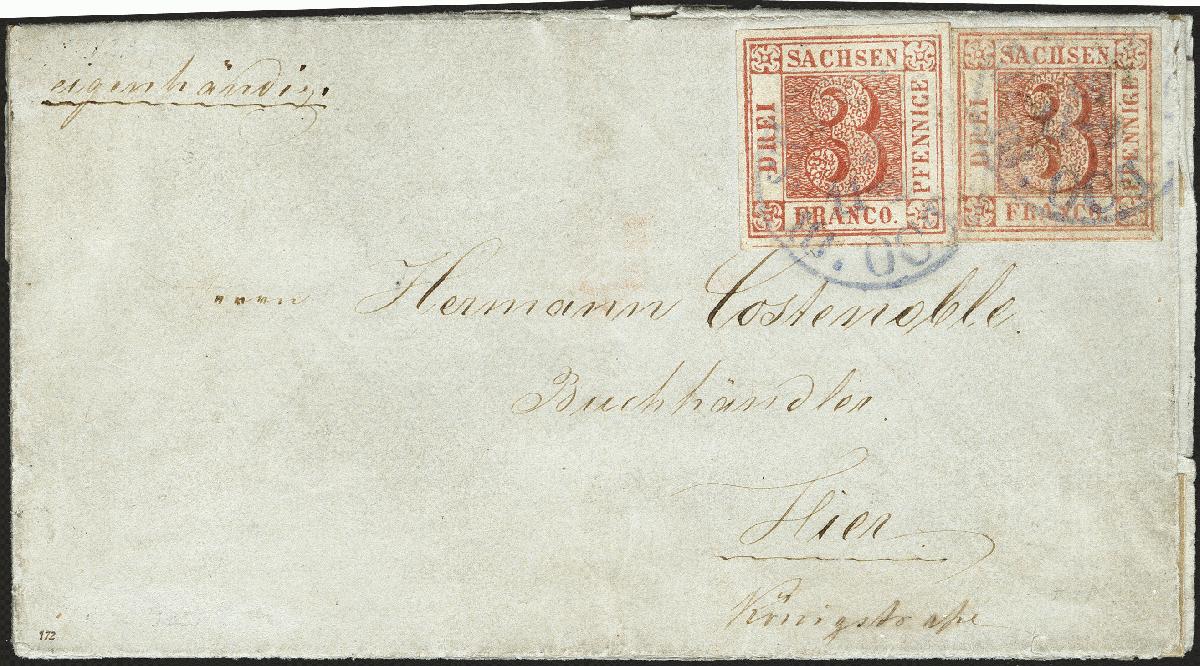 eigenhändig.
SACHSEN
DREI
3
PFENNIGE
FRANCO.
SACHSEN
DREI
3
PFENNIGE
FRANCO.
Hermann Costenoble.
Buchhändler.
Hier
Königstraße
172